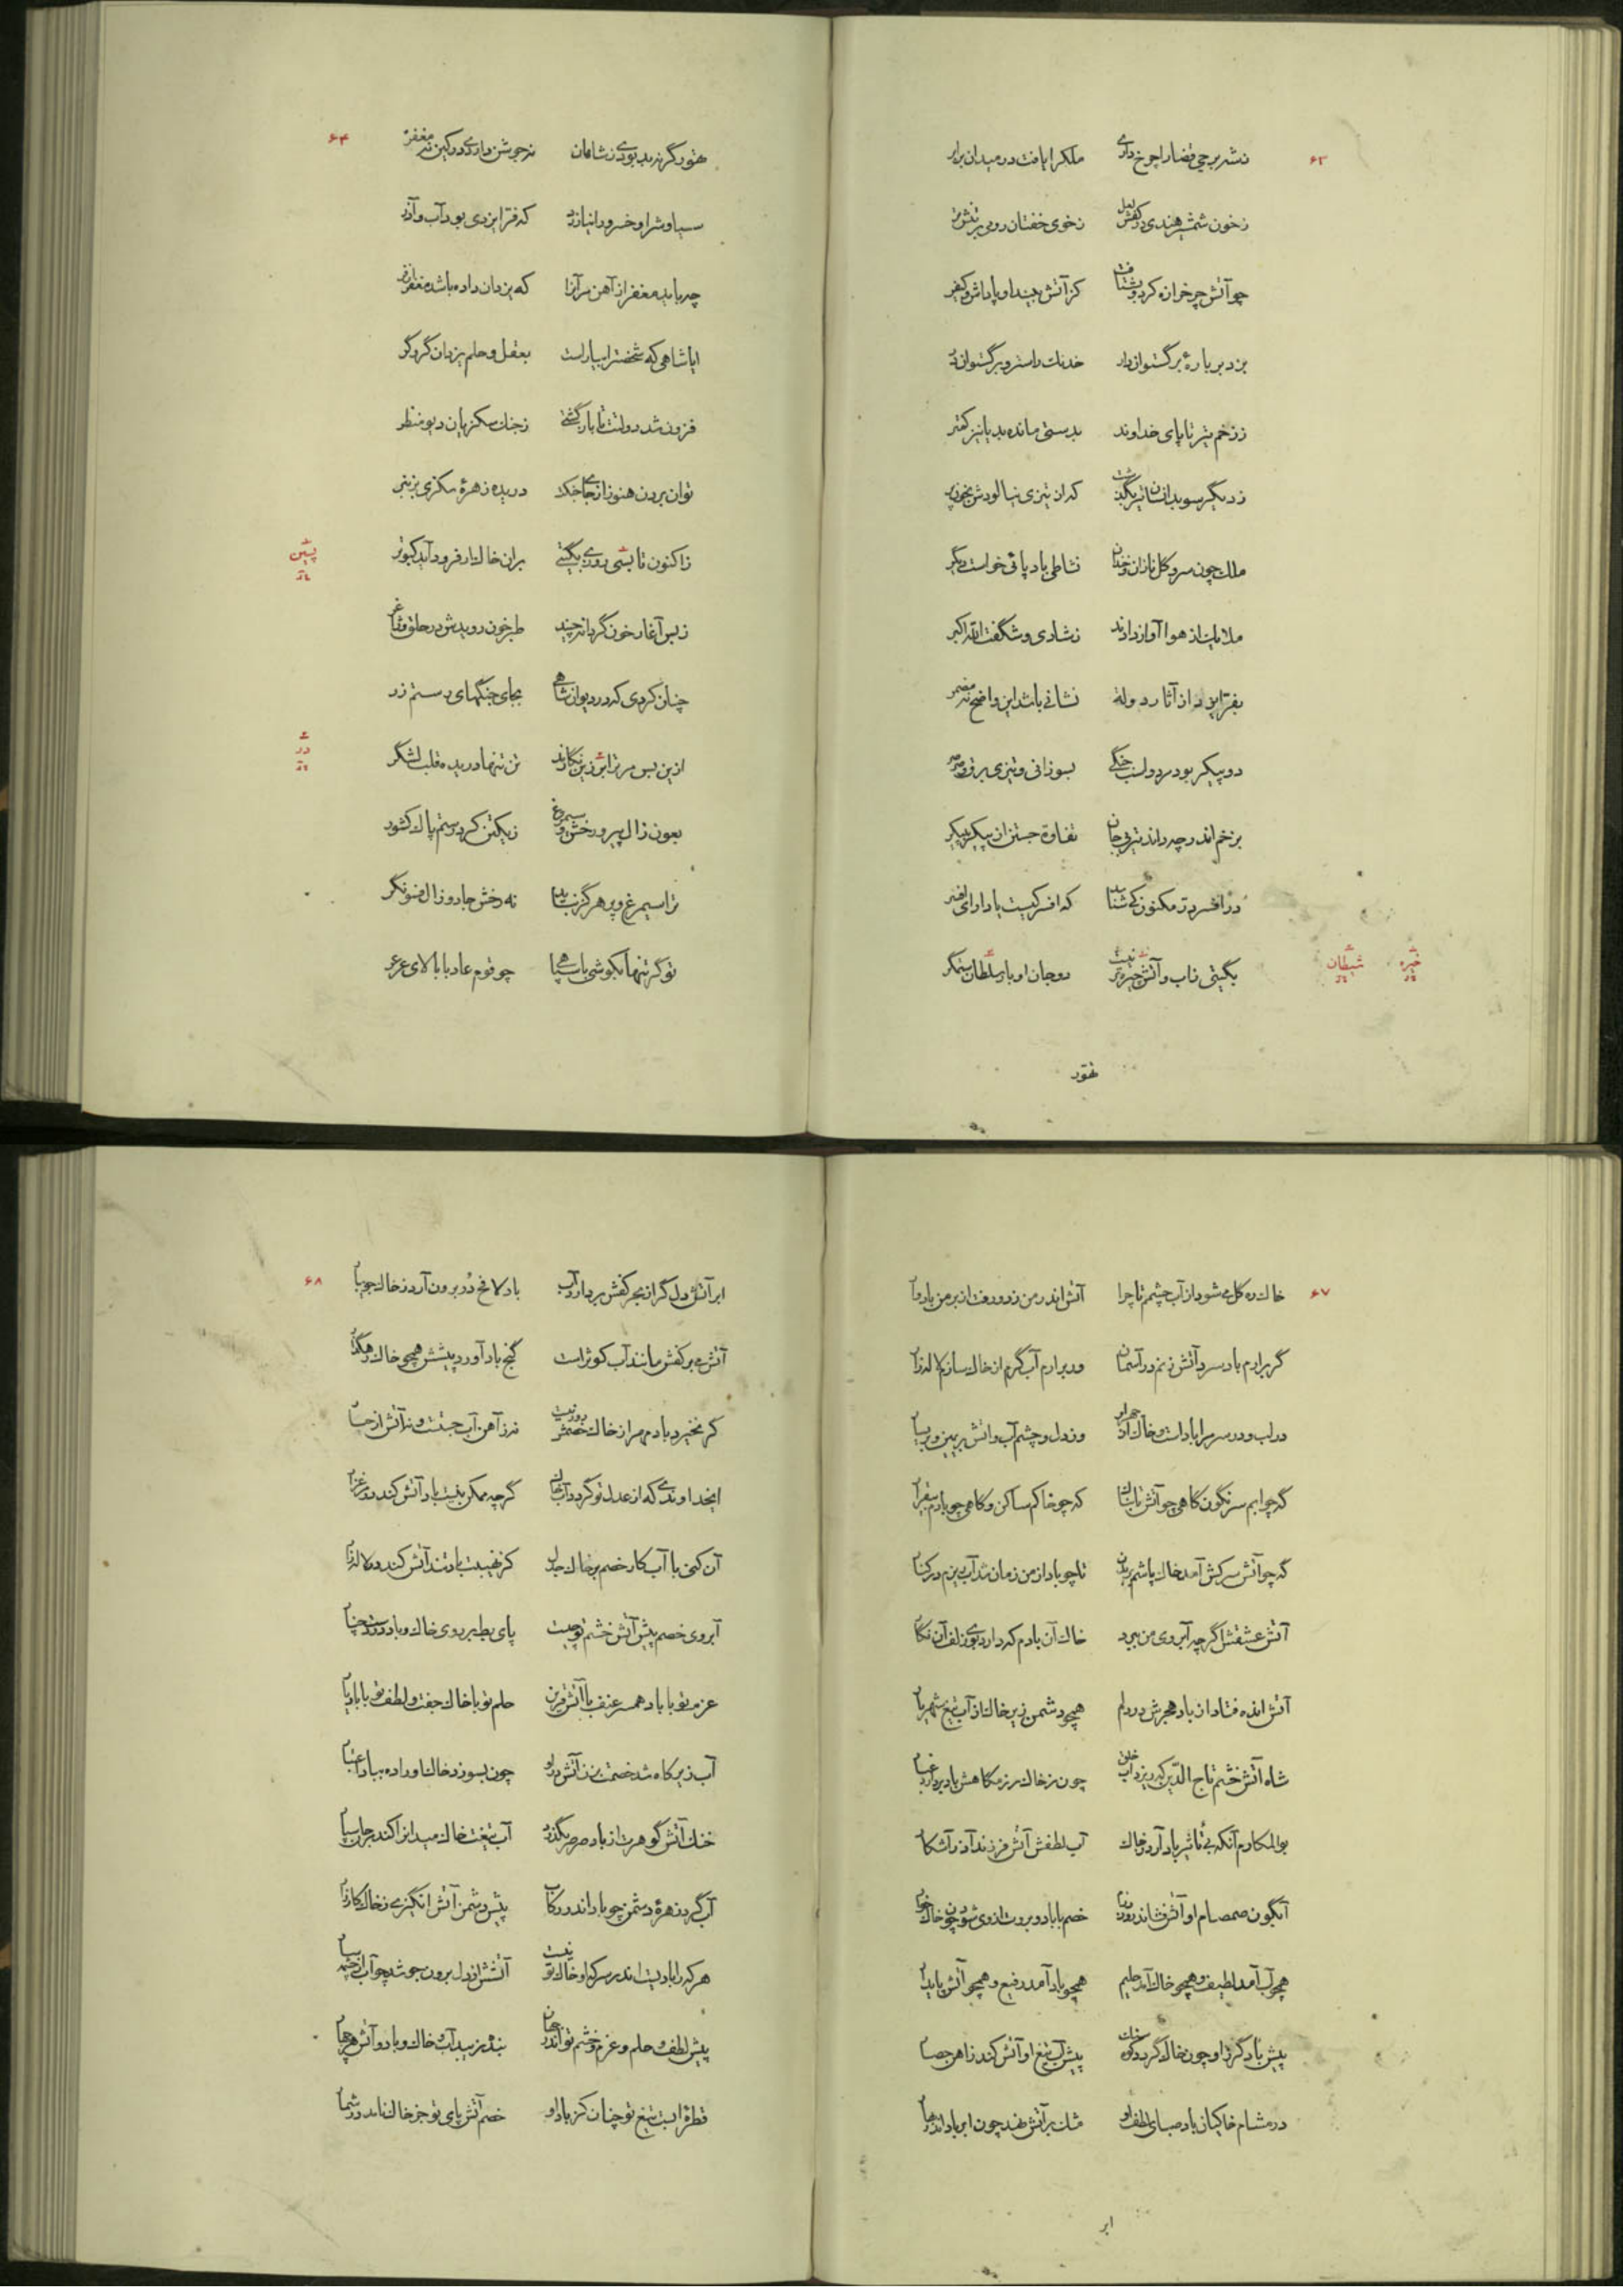 ۶۳
ملکرا یافت در میدان برابر
ز خون شمشیر هندی در کفش لعل ز خوی خفتان رومی بر تنش تر
چو آتش چرخ زان کرد و بشتافت کز آتش بیند او پاداش و کیفر
بزد بر بارهٔ برگستوان‌دار خدنگ راست‌رو برگستوان‌در
ز زخم تیر تا پای خداوند بدستی مانده بد یا نیز کمتر
ز دیگر سو بدانسان تیر بگذشت که از تیزی نیالودش بخون پر
ملک چون سرو و گل نازان و خندان نشاطی بادپائی خواست دیگر
ملایک از هوا آواز دادند ز شادی و شگفت الله اکبر
بفر ایزد از آثار دولة نشانی باشد این واضح نه مضمر
دو پیکر بود مردو اسب جنگی
بزخم اندر چه داند تیر بی‌جان تفاوة جستن از پیکر به پیکر
در افسر در مکنون کی شناسد که افسر کیست یا دارای افسر
بگیتی ز آب و آتش چیره‌تر نیست دو جان اوبار سلطان ستمگر
خیره
شیطان
هنود
۶۴
هنود گر نه بد بودی ز شاهان نه جوشن داری در کین نه مغفر
سیاوش را و خسرو را نیازرد که فر ایزدی بود آب و آذر
چه باید مغفر از آهن مر آنرا که یزدان داده باشد مغفر از فر
ایا شاهی که شخصت را بیاراست بعقل و حلم یزدان گروگر
فزون شد دولتت تا بار گشتی ز جنگ سگزیان دیو منظر
توان بردن هنوز از جای جنگ دریده زهرهٔ سگزی بزنبر
ز اکنون تا بشی روزی بگیتی بران خاک ار فرود آید کبوتر
ز بس آغار خون گر دانه چیند طبرخون رویدش در حلق و ژاغر
چنان کردی که در دیوان شاهی بجای جنگهای رستم زر
ازین پس مر ترا بر زین نگارند تن تنها دریده قلب لشگر
بعون زال پیر و رخش و سیمرغ ز یکتن کرد رستم پاک کشور
ترا سیمرغ و پر هرگز نبایند نه رخش جادو و زال فسونگر
تو گر تنها بکوشی با سپاهی چو قوم عاد با بالای عرعر
پیش
در
۶۷
خاک ره گل می‌شود از آب چشمم تا چرا آتش اندر من زد و رفت از بر من بادوار
گر برارم باد سرد آتش زنم در آسمان ور برارم آب گرم از خاک سازم لاله‌زار
در لب و در سر مرا باد است و خاک از هجر او وز دل و چشم آب و آتش بر یمین و بر یسار
گه چو آبم سرنگون گاهی چو آتش تابناک گه چو خاکم ساکن و گاهی چو بادم بیقرار
گه چو آتش سرکش آمد خاک پاشم بر بدن تا چو باد از من زمان شد آب بزم در کنار
آتش عشقش اگر چه آبروی من ببرد خاک آن بادم که دارد بوی زلف آن نگار
آتش اندر فتاد از باد هجرش در دلم همچو دشمن زیر خاک از آب تیغ شهریار
شاه آتش خشم تاج الدین که ریزد آب خلق چون ز خاک رزمگاهش باد بردارد غبار
بوالمکارم آنکه بی تاثیر باد آرد ز خاک آب لطفش آتش فرزند آذر آشکار
آبگون صمصام او آتش فشاند روز رزم
همچو آب آمد لطیف و همچو خاک آمد حلیم همچو باد آمد رفیع و همچو آتش پایدار
پیش باد گرز او چون خاک گردد کوه پیش آب تیغ او آتش کند ز آهن حصار
در مشام خاکیان باد صبای لطف او مشک بر آتش نهد چون ابر باد اندر بهار
ابر
۶۸
ابر آتش دل گر از بحر کفش بردارد آب باد لافح در برون آرد ز خاک جویبار
آتش می بر کفش مانند آب کوثر است گنج بادآورد پیشش همچو خاک رهگذار
گر نخیزد باد مهر از خاک خصمش دور نیست نه ز آهن آب جست و نه آتش از چنار
ایخداوندی که از عدل تو گردد آب خاک گرچه ممکن نیست باد آتش کند در مرغزار
آن کنی با آب کار خصم بر خاک جدل کز نهیبت باد تند آتش کند در لاله‌زار
آبروی خصم پیش آتش خشم تو چیست پای بط بر روی خاک و باد در دست چنار
عزم تو با باد همسر عنف با آتش قرین حلم تو با خاک جفت و لطف تو با آب یار
آب زیر کاه شد خصمت بزن آتش درو چون بسوزد خاک او را ده بباد اعتبار
خنک آتش گوهرت از باد صرصر بگذرد آب تیغت خاک میدانرا کند مرجان سپار
آب گردد زهرهٔ دشمن چو باد اندر رکاب پیش دشمن آتش انگیزی ز خاک کارزار
هر که را بادیست اندر سر که او خاک تو نیست آتشش از دل برون جوشد چو آب از چشمه‌سار
پیش لطف و حلم و عزم و خشم تو اندر جهان بنده زیبد آب و خاک و باد و آتش هر چهار
قطرهٔ آبست تیغ تو چنان کز باد او خصم آتش پای تو جز خاک ناید در شمار